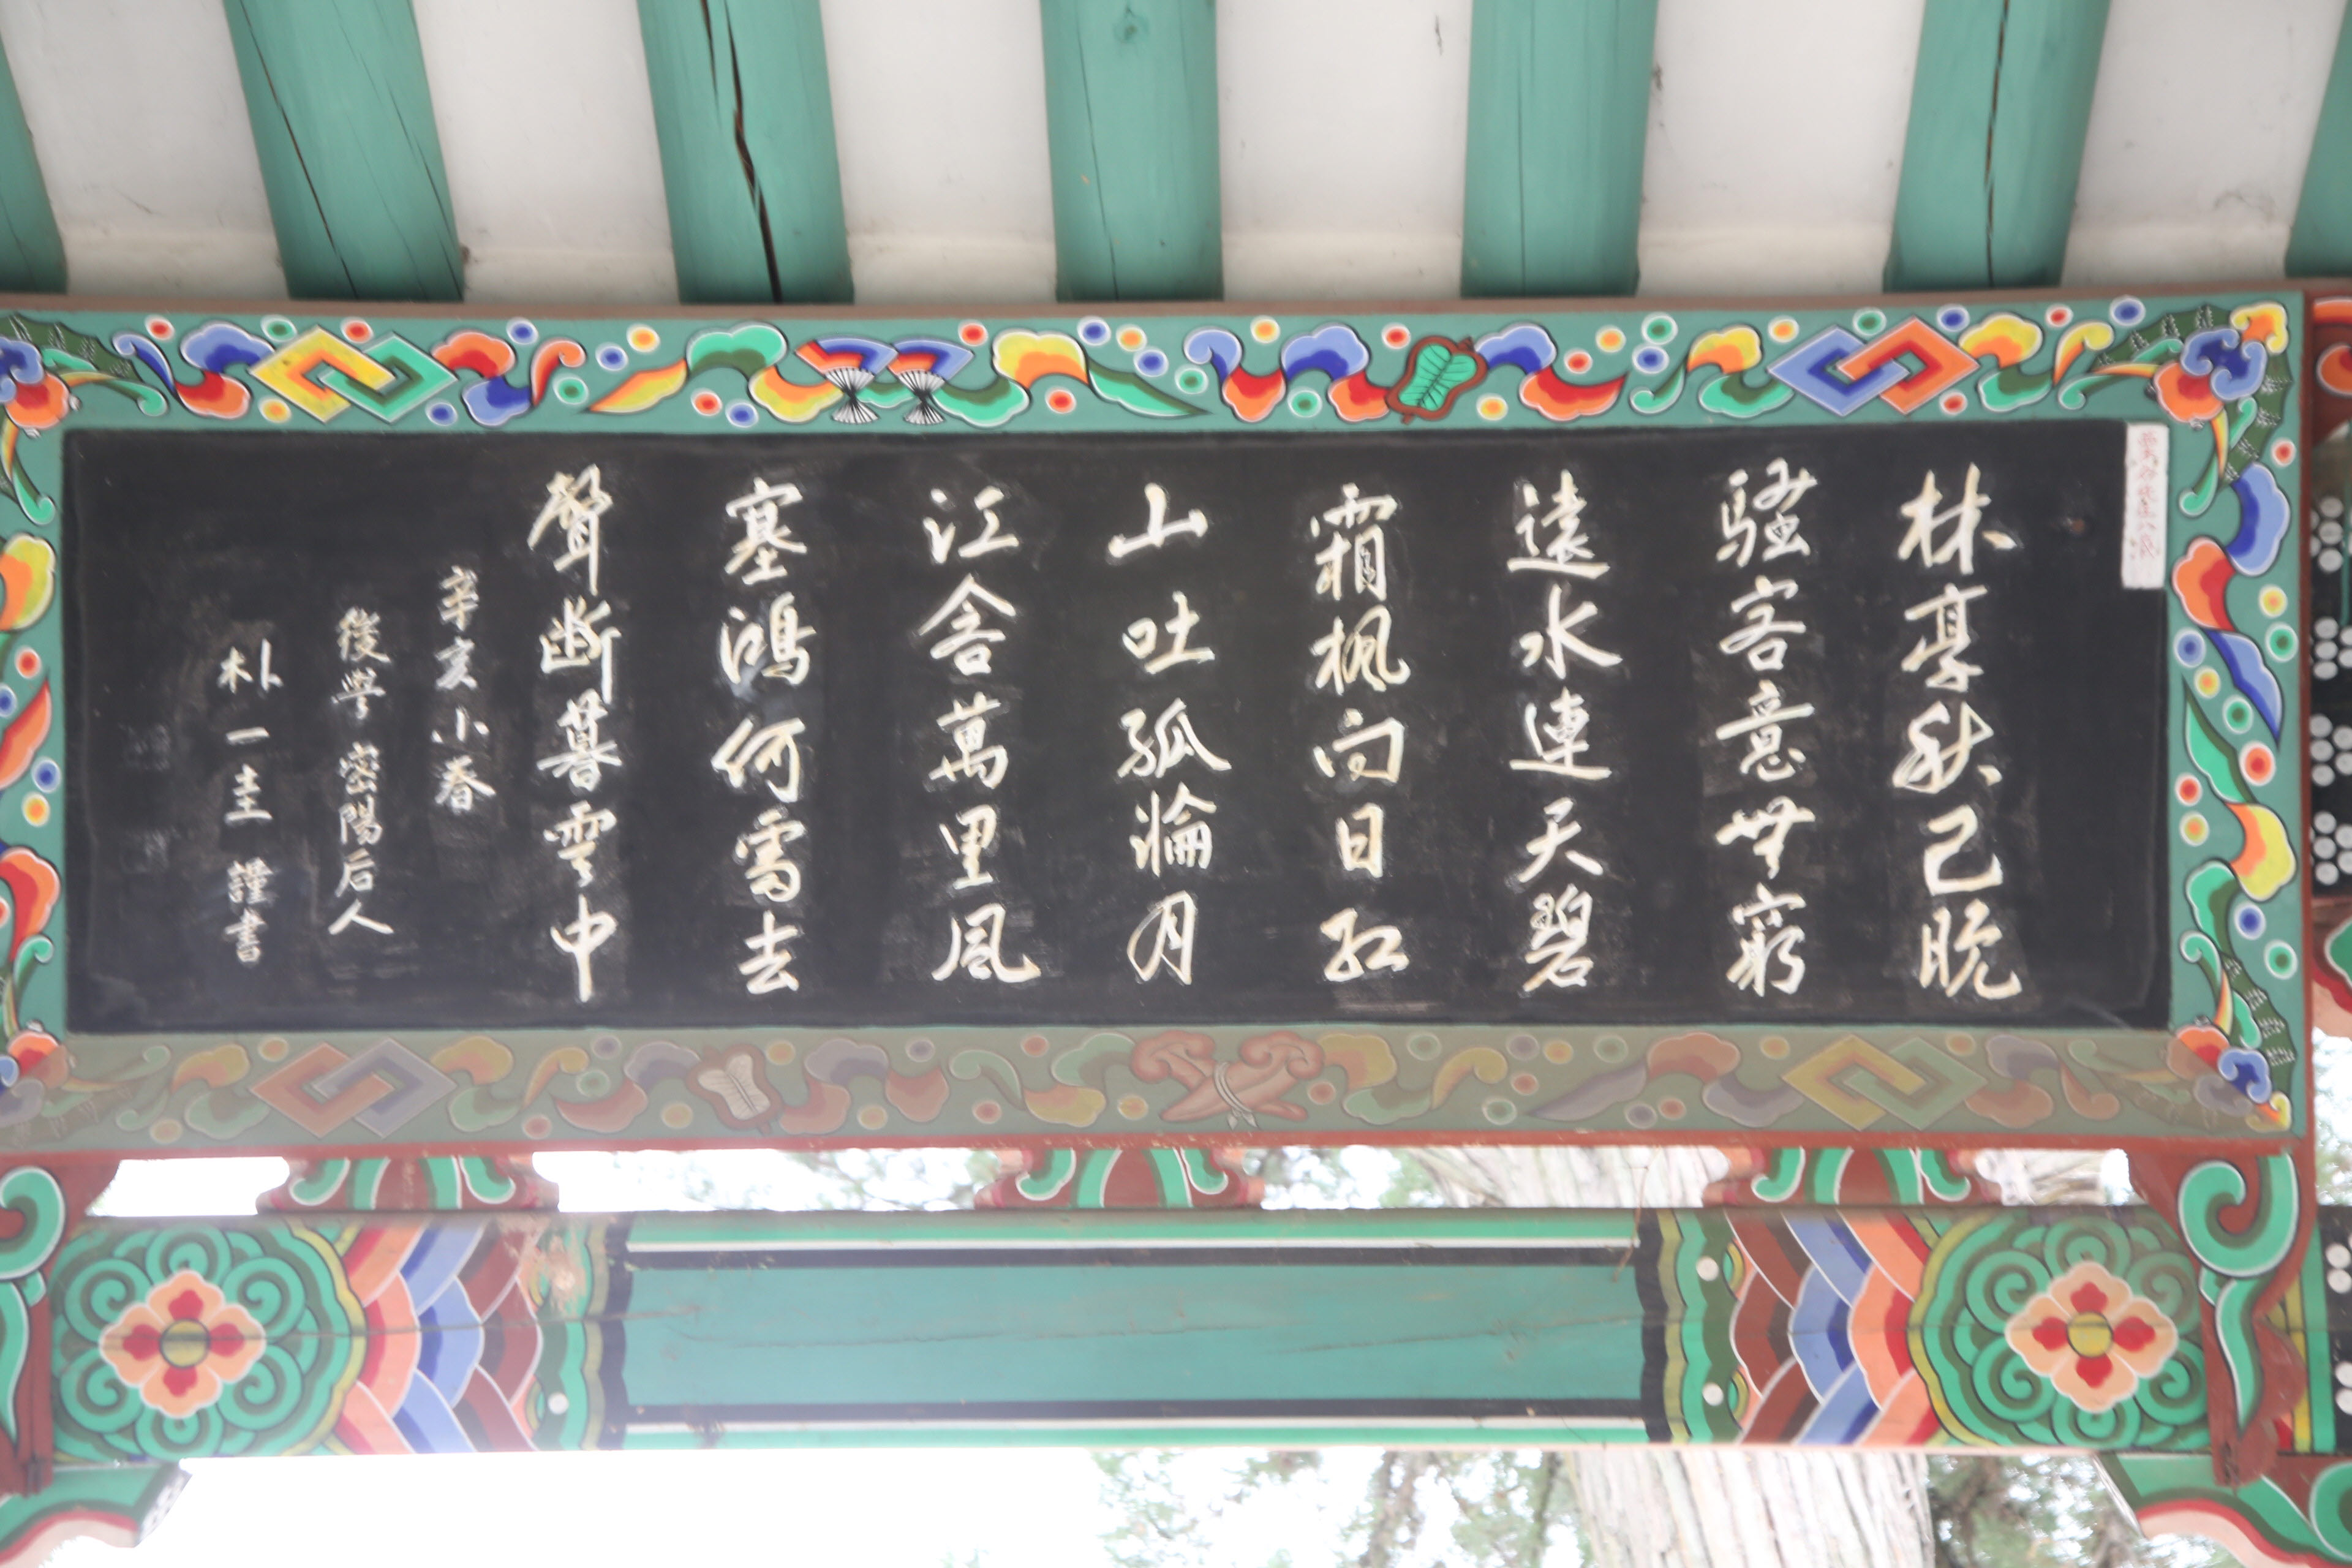 栗谷先生八歲
林亭秋已晩
騷客意無窮
遠水連天碧
霜楓向日紅
山吐孤輪月
江含萬里風
塞鴻何處去
聲斷暮雲中
辛亥小春
後學 密陽后人
朴一圭 謹書